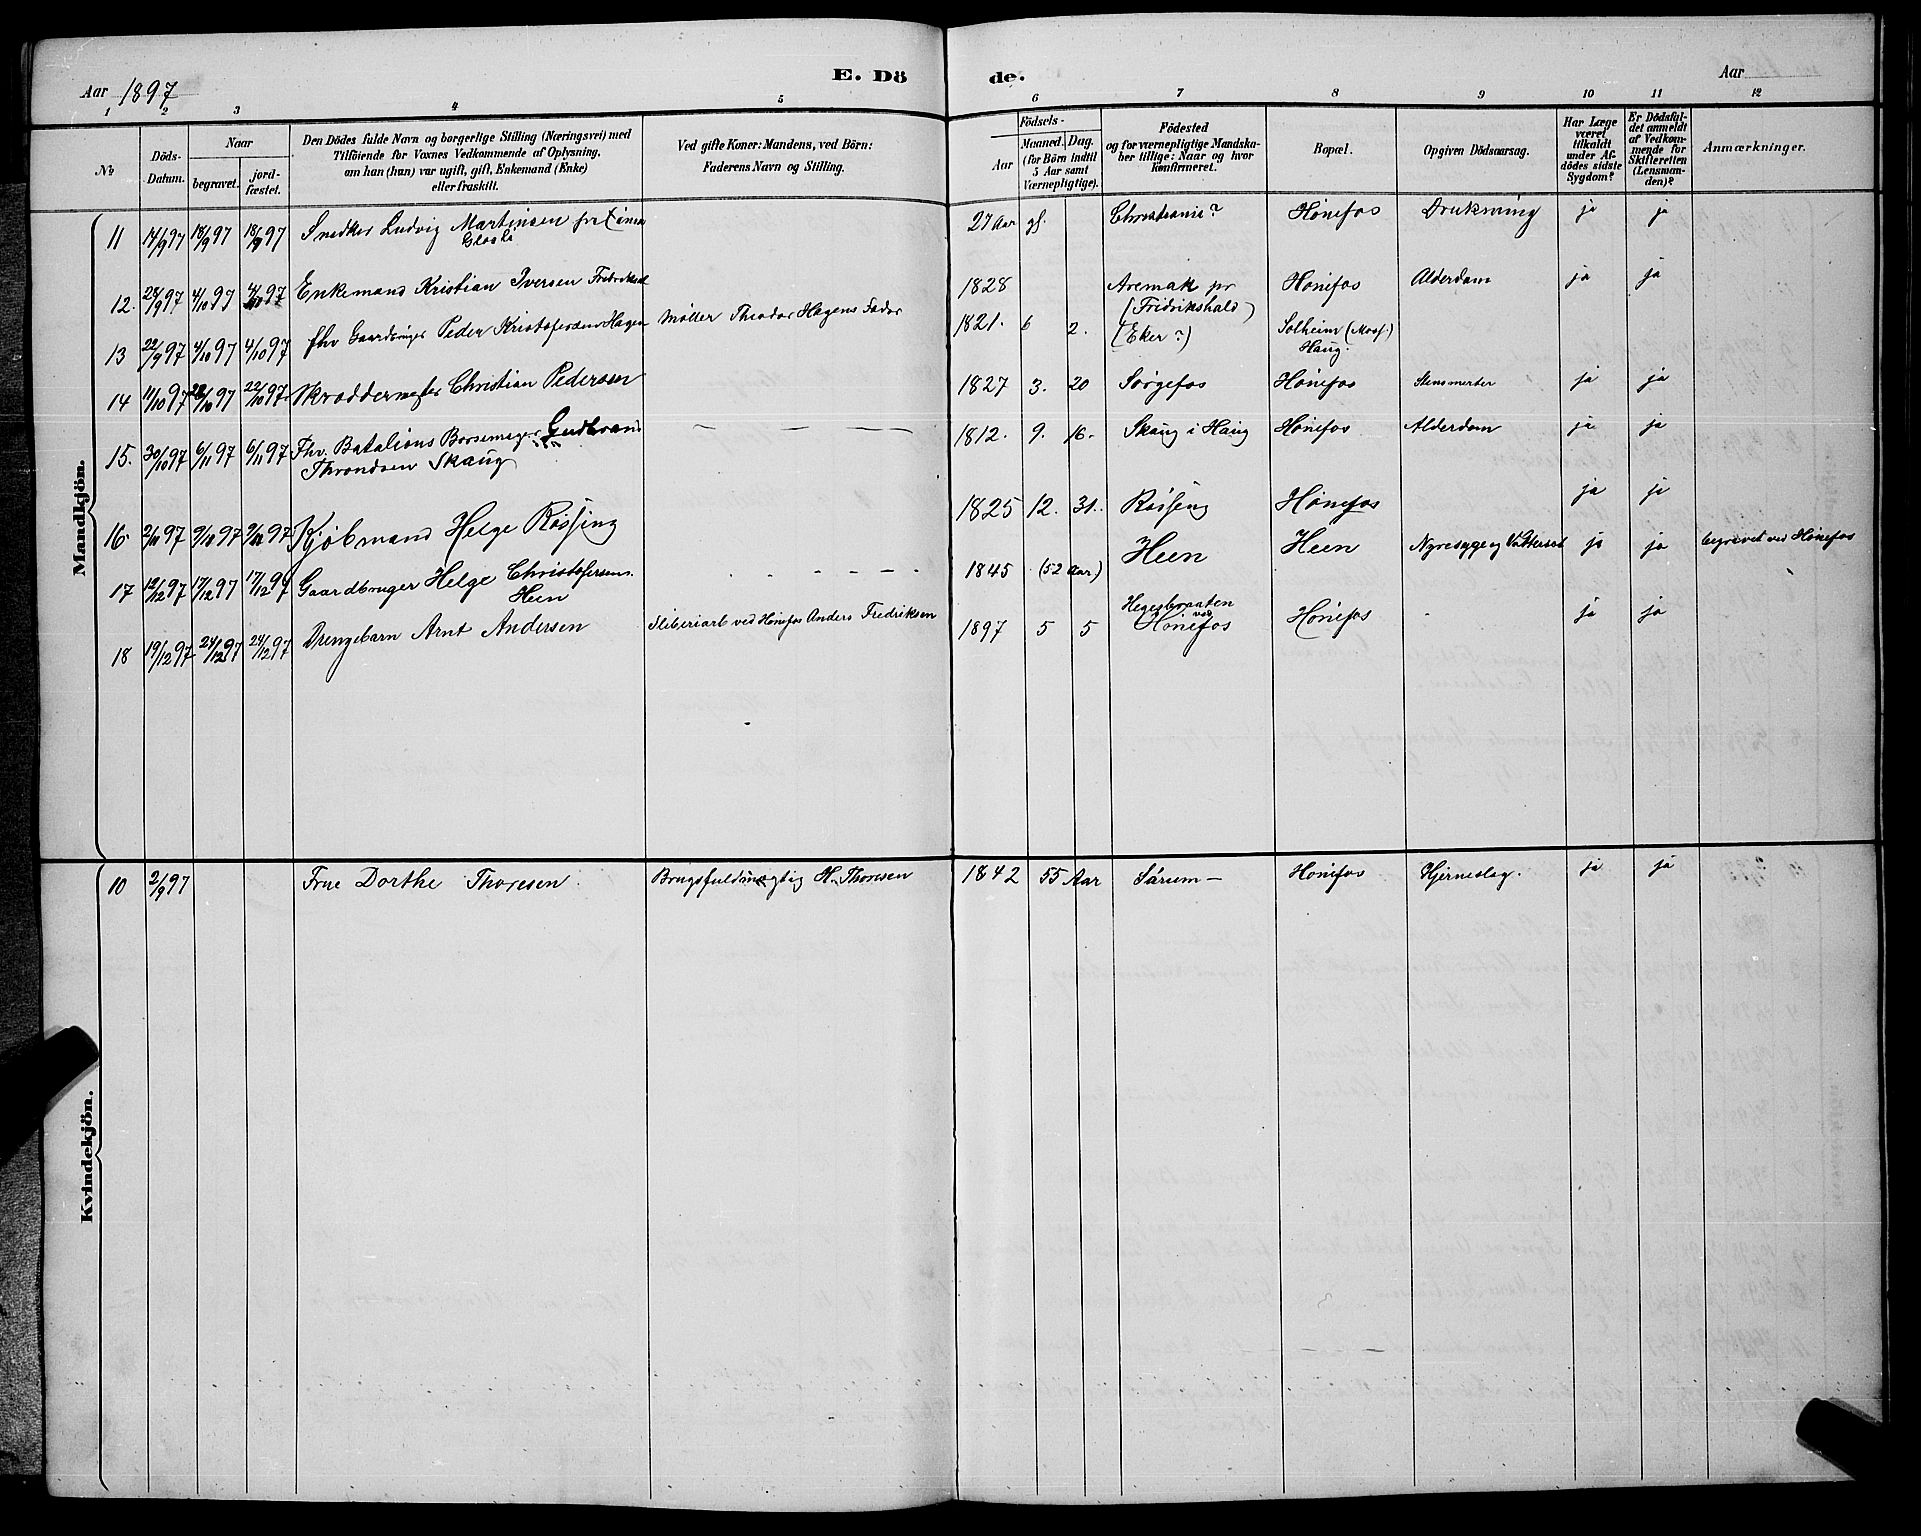 Aar 1897
E. Dö de.
Aar
1 2 3 4 5 6 7 8 9 10 11 12
No
Döds-Datum.
Naar
begravet.
jord-fæstet.
Den Dödes fulde Navn og borgerlige Stilling (Næringsvei) med
Tilföiende for Voxnes Vedkommende af Oplysning,
om han (hun) var ugift, gift, Enkemand (Enke)
eller fraskilt.
Ved gifte Koner: Mandens, ved Börn:
Faderens Navn og Stilling.
Födsels-
Aar
Maaned. Dag.
(for Börn indtil
5 Aar samt
Værnepligtige).
Födested
og for værnepligtige Mandska-
ber tillige: Naar og hvor
konfirmeret.
Bopæl.
Opgiven Dödsaarsag.
Har Læge
været
tilkaldt
under Af-
dödes sidste
Sygdom?
Er Dödsfal-
det anmeldt
af Vedkom-
mende for
Skifteretten
(Lensman-
den)?
Anmærkninger.
Mandkjön.
11 14/9 97 18/9 97 18/9 97 Snedker Ludvig Martinsen 27 Aar gl. Christiania? Hönefos Drukning ja ja
12. 28/9 97 4/10 97 4/10 97 Enkemand Kristian Iversen 1828 Aremak pr Hönefos Alderdom ja ja
(Fridrikshald)
13 22/9 97 4/10 97 4/10 97 fhv Gaardbruger Peder Kristofersen Hagen Møller Theodor Hagens Fader 1821. 6 2. (Eker?) Solheim (Mosf.)
Haug.
14 11/10 97 22/10 97 22/10 97 Skræddermester Christian Pedersen 1827 3. 20 Sørgefos Hönefos Stensmerter ja ja
15. 30/10 97 6/11 97 6/11 97 Fhv. Batalions Bøssemager Gudbrand — — — 1812. 9. 16. Skaug i Haug Hönefos Alderdom ja ja
Throndsen Skaug
16. 2/11 97 9/11 97 9/11 97 Kjøbmand Helge Røssing 1825 12. 31. Røssing Hönefos ja ja
17 12/12 97 17/12 97 17/12 97 Gaardbruger Helge Christofersen - - - - - 1845 (52 Aar) Heen Heen Nyresyge og Vattersot ja ja begravet ved Hönefos
Heen
18 19/12 97 24/12 97 24/12 97 Drengebarn Arnt Andersen Sliberiarb ved Hönefos Anders Fredriksen 1897 5 5 Hegesbraaten
ved
Hönefos Hönefos - ja ja
Kvindekjön.
10 2/9 97 Frue Dorthe Thoresen. Brugsfuldmægtig H. Thoresen 1842 55 Aar Sörum — Hönefos Hjerneslag. ja ja